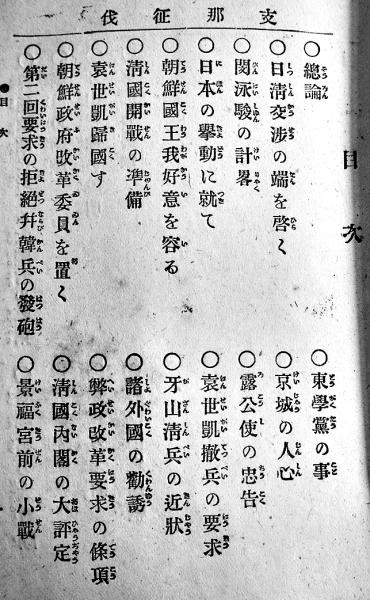 支那征伐
目次
○總論
○東學黨の事
○日淸交涉の端を啓く
○京城の人心
○閔泳駿の計畧
○露公使の忠告
○日本の擧動に就て
○袁世凱撤兵の要求
○朝鮮國王我好意を容る
○牙山淸兵の近狀
○淸國開戰の凖備
○諸外國の勸誘
○袁世凱歸國す
○弊政改革要求の條項
○朝鮮政府改革委員を置く
○淸國內閣の大評定
○第二回要求の拒絕幷韓兵の發砲
○景福宮前の小戰
●目次